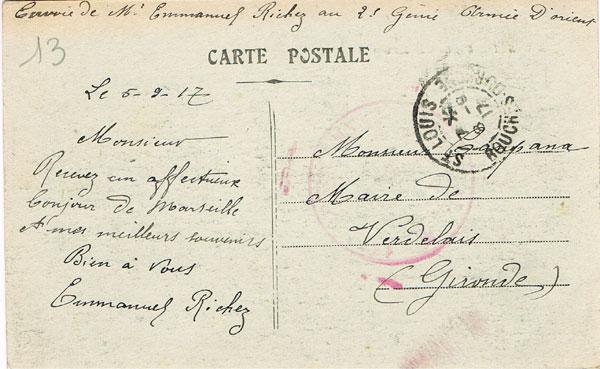 Envoie de Mr Emmanuel Richez au 2s Génie Armée D'orient
13
CARTE POSTALE
Le 6-9-17
Monsieur
Recevez un affectueux
Bonjour de Marseille
& mes meilleurs souvenirs
Bien à vous
Emmanuel Richez
ST LOUIS
BOUCH
Monsieur
Maire de
Verdelais
(Gironde)